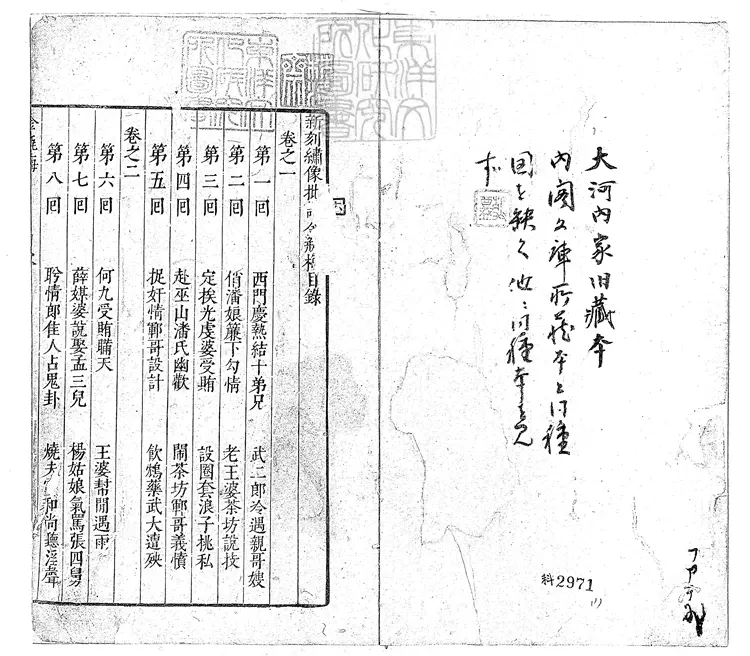 大河内家旧藏本
内阁文庫所藏本と同種
図を缺く他に同種本を見
ず
料2971
新刻繡像批評金瓶梅目錄
卷之一
第一回 西門慶熱結十弟兄 武二郎冷遇親哥嫂
第二回 俏潘娘簾下勾情 老王婆茶坊說技
第三回 定挨光虔婆受賄 設圈套浪子挑私
第四回 赴巫山潘氏幽歡 鬧茶坊鄆哥義憤
第五回 捉奸情鄆哥設計 飲鴆藥武大遭殃
卷之二
第六回 何九受賄瞞天 王婆幫閒遇雨
第七回 薛媒婆說娶孟三兒 楊姑娘氣罵張四舅
第八回 盼情郎佳人占鬼卦 燒夫靈和尚聽淫聲
金瓶梅